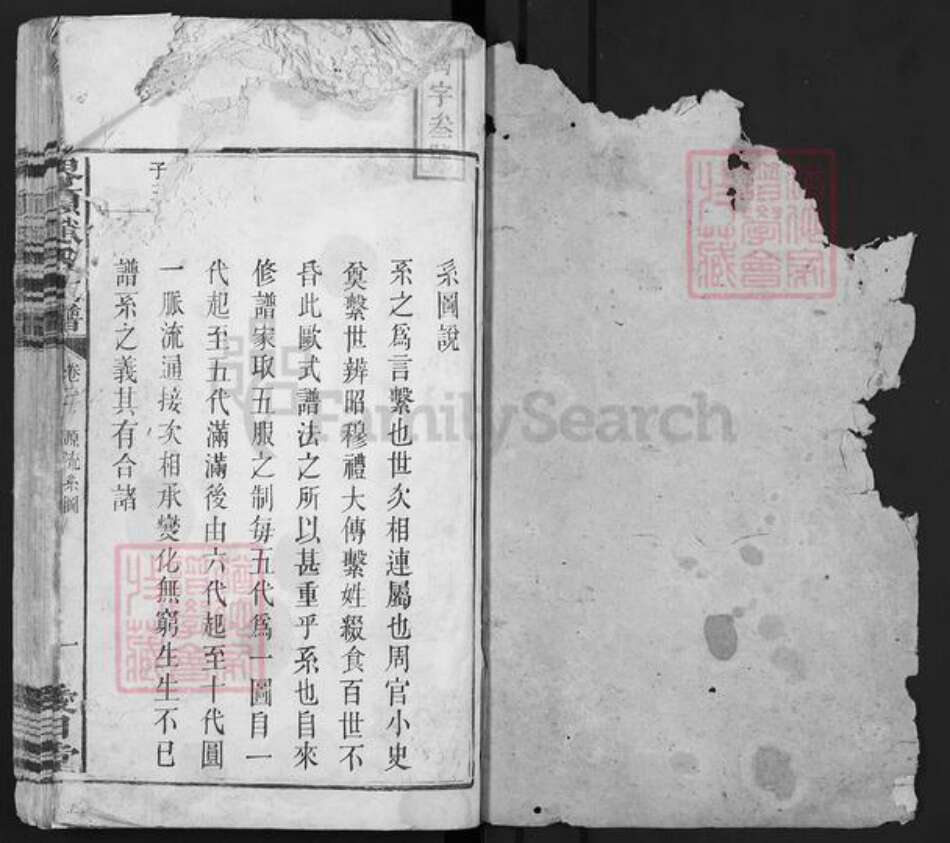 字叁
子
系圖說
系之爲言繫也世次相連屬也周官小史
奠繫世辨昭穆禮大傳繫姓綴食百世不
昏此歐式譜法之所以甚重乎系也自來
修譜家取五服之制每五代爲一圖自一
代起至五代滿滿後由六代起至十代圓
一脈流通接次相承變化無窮生生不已
譜系之義其有合諸
譜
卷
源流系圖
一
FamilySearch